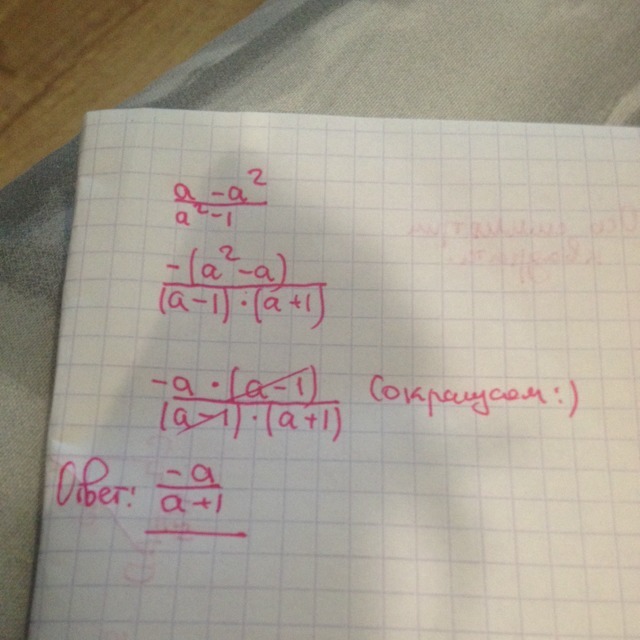 a - a²
a² - 1
-(a² - a)
(a - 1) · (a + 1)
-a · (a - 1)
(a - 1) · (a + 1)
(окращаем :)
Ответ: -a
a + 1